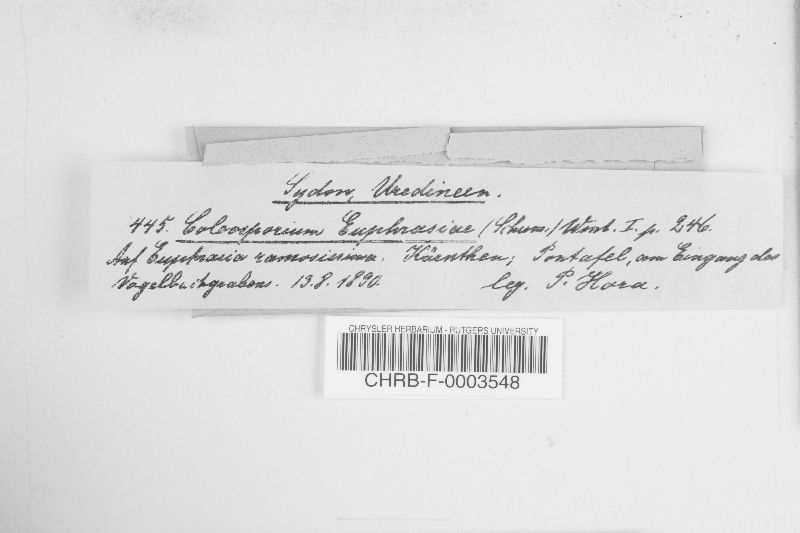 Sydow, Uredineen.
445. Coleosporium Euphrasiae (Schum.) Wint. I. p. 246.
Auf Euphrasia ramosissima. Kärnthen; Pontafel, am Eingang des
Vogelbachgrabens. 13.8.1890. leg. P. Hora.
CHRYSLER HERBARIUM - RUTGERS UNIVERSITY
CHRB-F-0003548